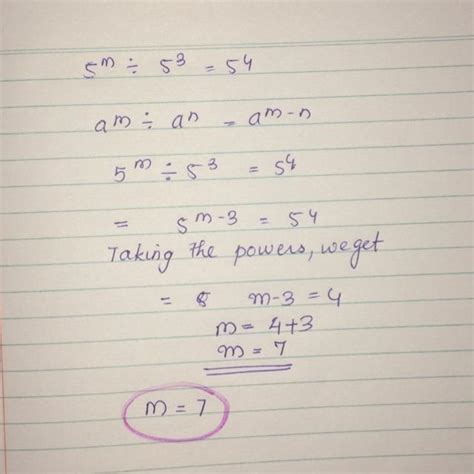 5^m ÷ 5^3 = 5^4
a^m ÷ a^n = a^m-n
5^m ÷ 5^3 = 5^4
= 5^m-3 = 5^4
Taking the powers, we get
= m-3 = 4
m = 4+3
m = 7
m = 7